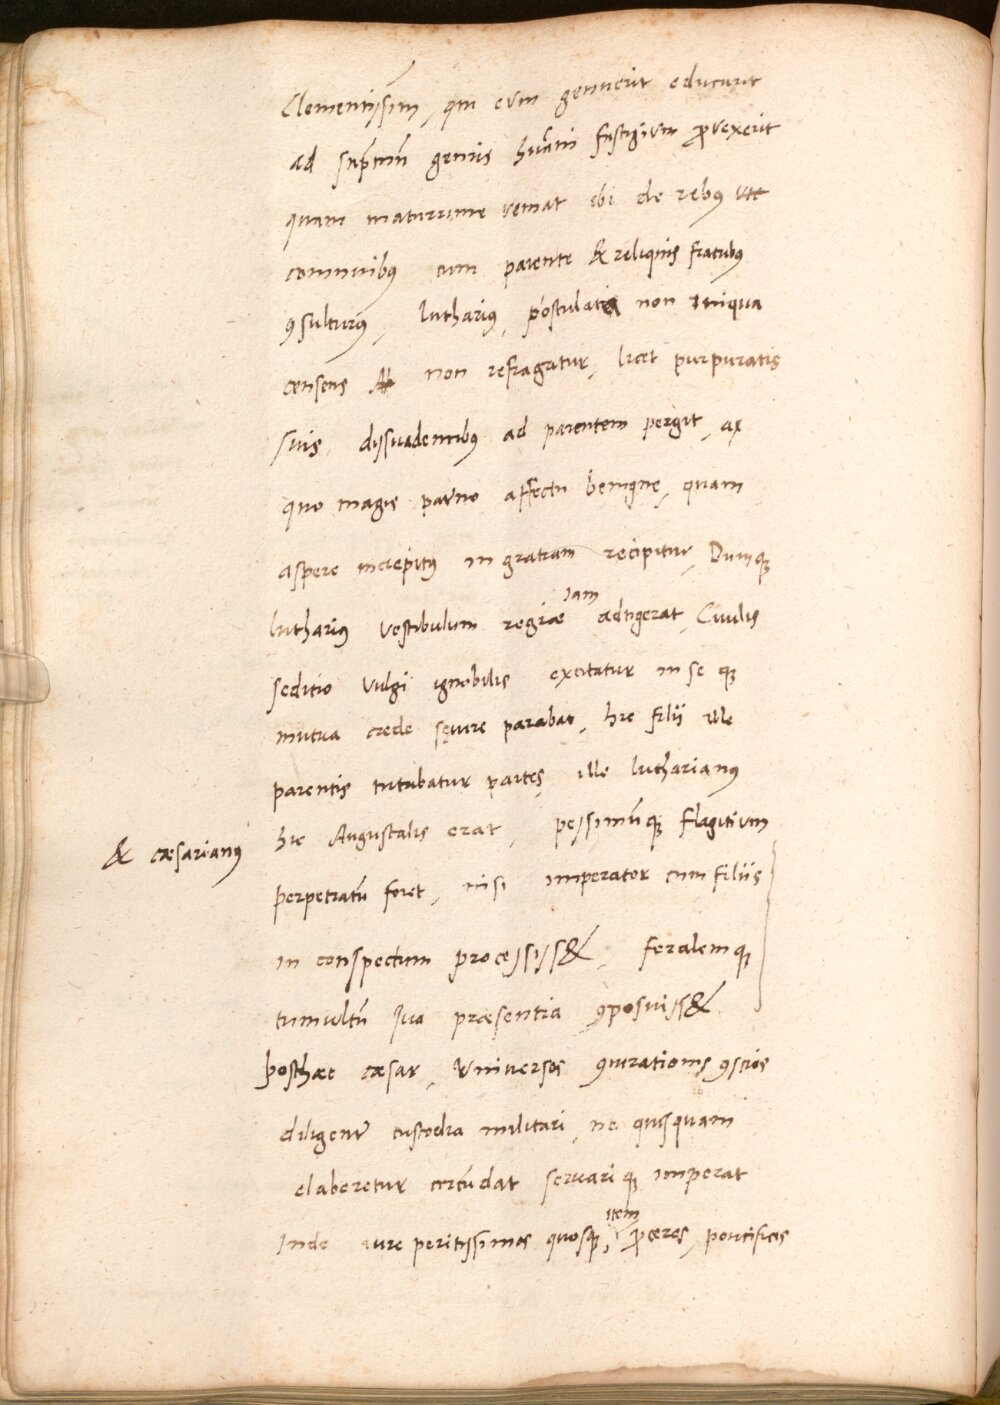 Clementissim̄, qui eum genuerit educarit
ad sup̄mū generis hūani fastigium ꝓvexerit
quam maturrime veniat ibi de rebus
communibꝰ cum parente & reliquis fratribꝰ
ꝯsulturꝰ, lutharius, postulata non iniqua
censens non refragatur, licet purpuratis
suis dissuadentibꝰ ad parentem pergit, ax
quo magis pať̄no affectu benigne, quam
aspere increpitꝰ in gratiam recipitur, Dumqꝫ
lutharius vestibulum regiae iam adtigerat, Civilis
seditio vulgi ignobilis excitatur in se qꝫ
mutua caede sęvire parabat, hic filii ille
parentis tutabatur partes, ille lutharianꝰ
& caesarianꝰ
hic Augustalis erat, pessimūqꝫ flagitium
perpetratū foret, nisi imperator cum filiis
in conspectum processiss&, feralemqꝫ
tumultū sua praesentia ꝯposuiss&
posthaec caesar, universos ꝯiurationis ꝯscios
diligenť custodia militari, ne quisquam
elaberetur circūdat servariqꝫ imperat
Inde iure peritissimos quosqꝫ, item ꝓceres, pontifices